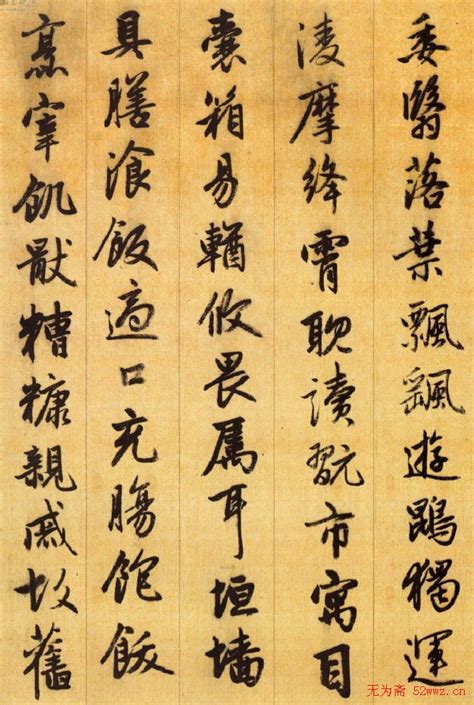 委翳落葉飄颻遊鵾獨運
淩摩絳霄耽讀翫市寓目
囊箱易輶攸畏屬耳垣墻
具膳湌飯適口充腸飽飫
烹宰飢猒糟糠親戚故舊
无为斋 52wwz.cn